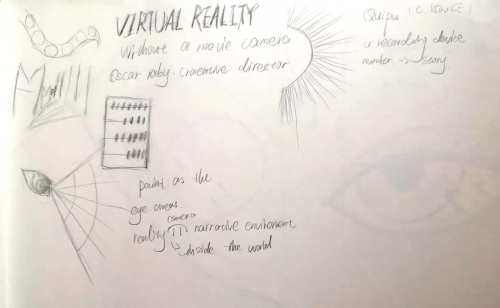 VIRTUAL REALITY
without a movie camera
Oscar raby. creative director
Quipu (C.
a recording device
number → story
point as the
eye areas
camera
reality narrative environment
inside the world